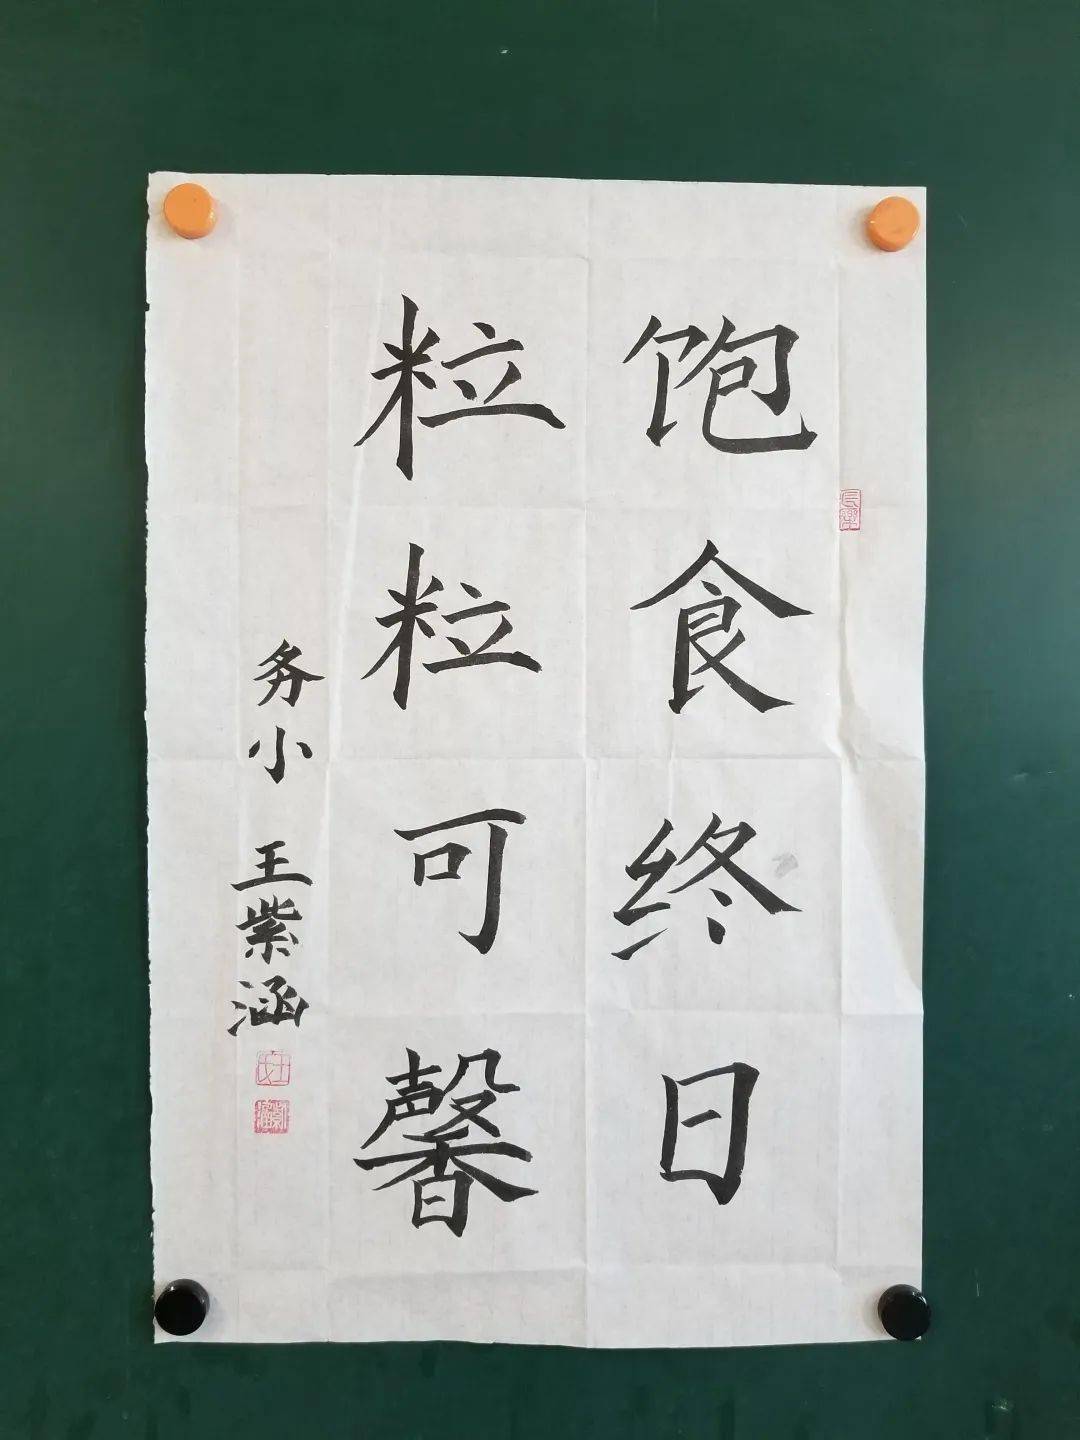 饱食终日
粒粒可馨
务小 王紫涵
长乐